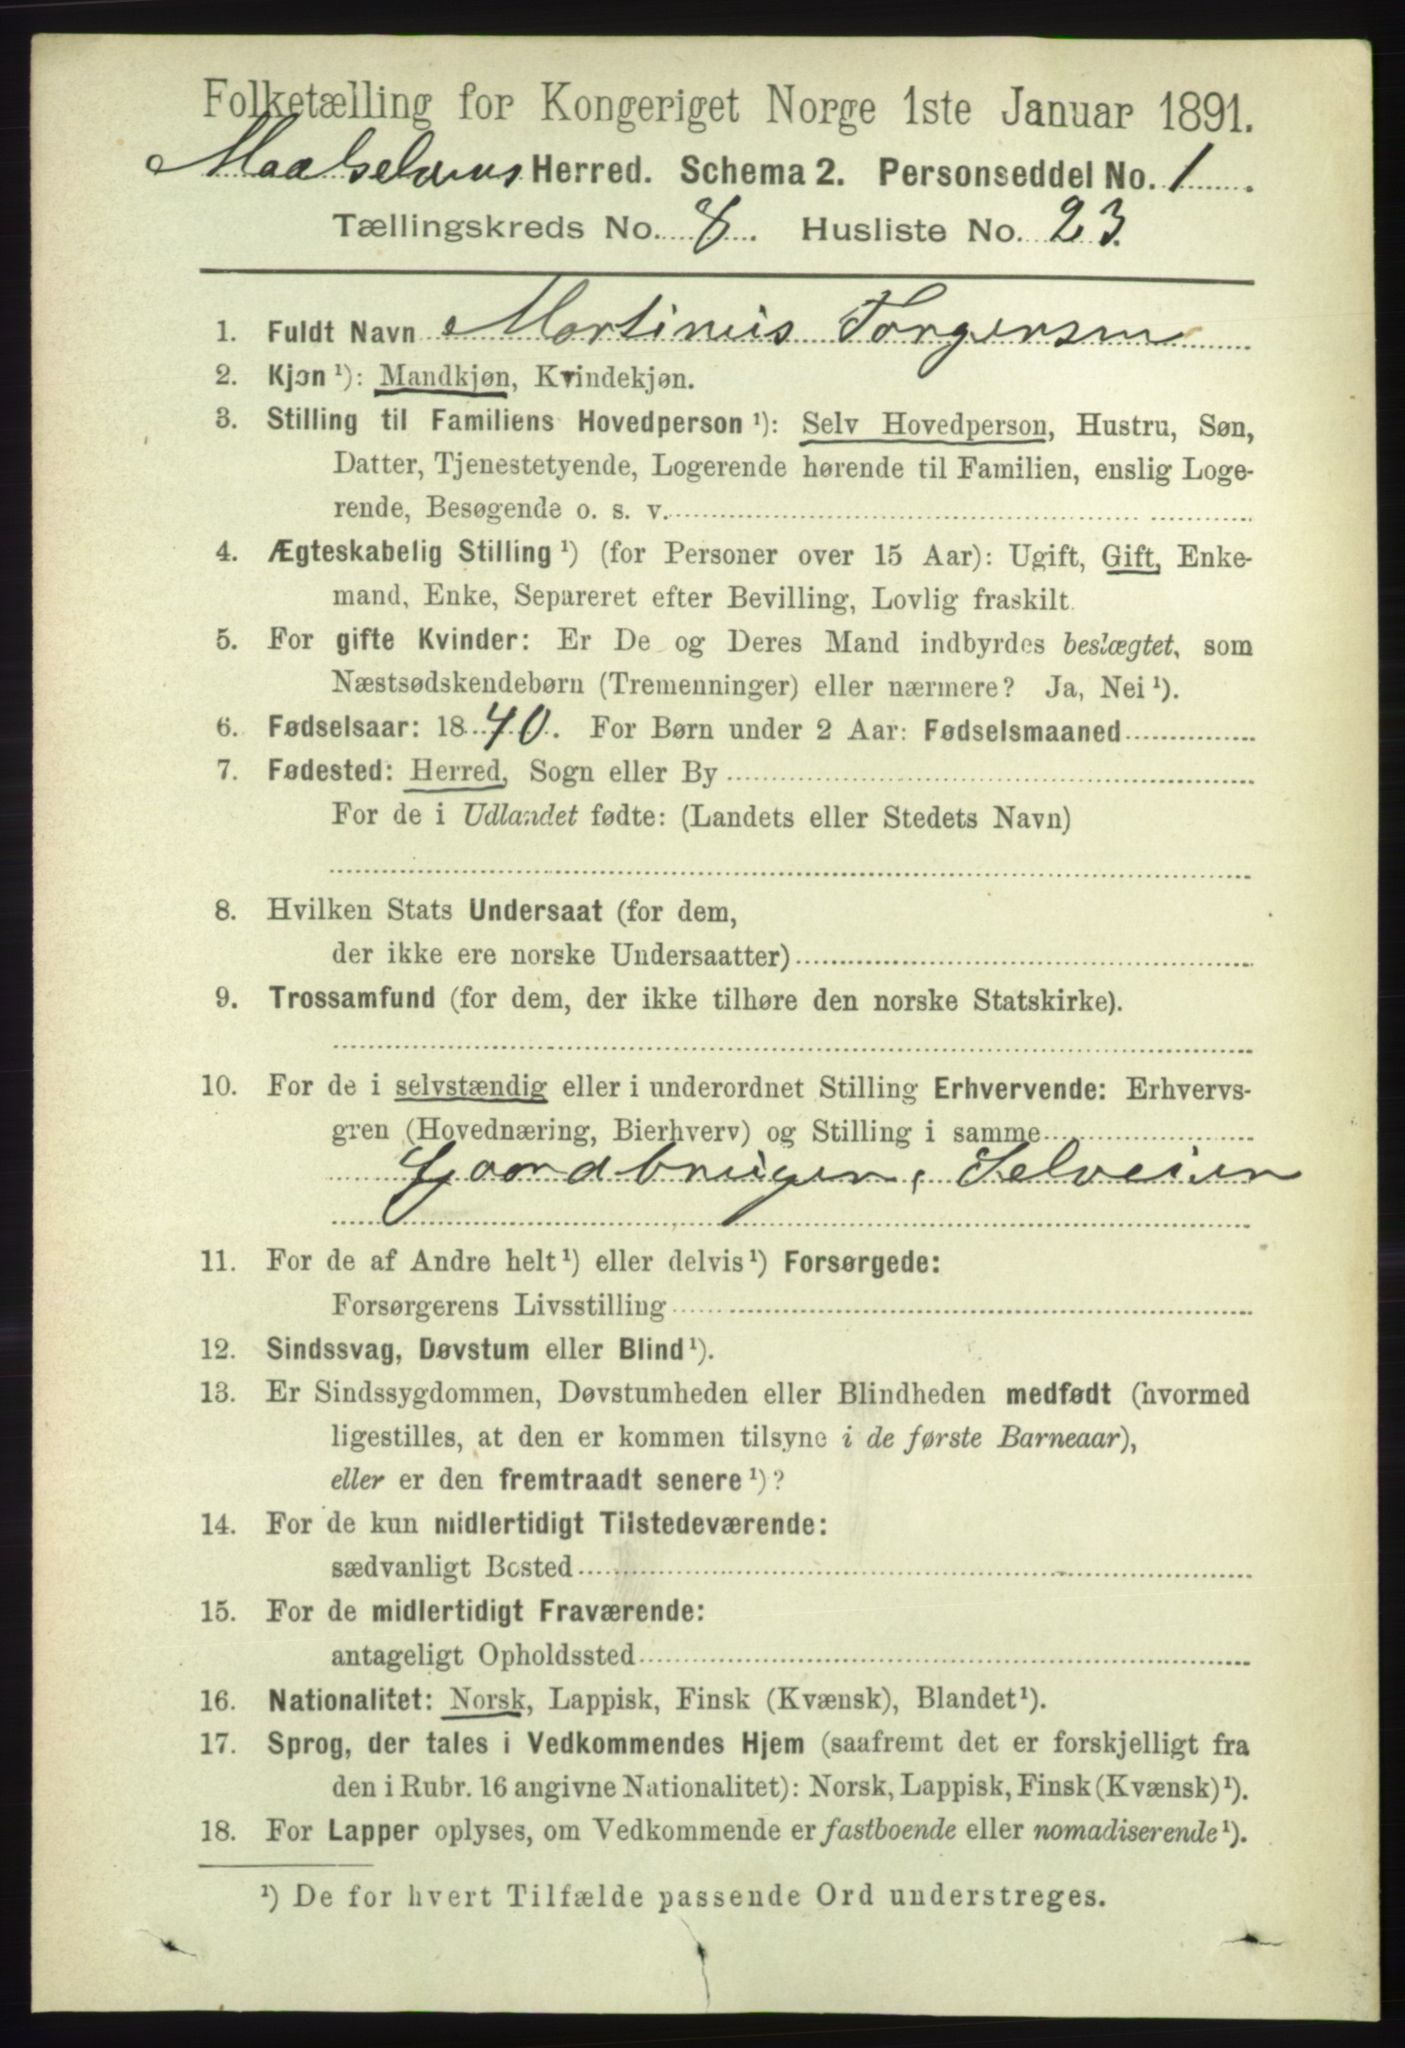 Folketælling for Kongeriget Norge 1ste Januar 1891.
Maalselvens Herred. Schema 2. Personseddel No. 1
Tællingskreds No. 8. Husliste No. 23.
1. Fuldt Navn Martinus Torgersen
2. Kjøn ¹): Mandkjøn, Kvindekjøn.
3. Stilling til Familiens Hovedperson ¹): Selv Hovedperson, Hustru, Søn,
Datter, Tjenestetyende, Logerende hørende til Familien, enslig Loge-
rende, Besøgende o. s. v.
4. Ægteskabelig Stilling ¹) (for Personer over 15 Aar): Ugift, Gift, Enke-
mand, Enke, Separeret efter Bevilling, Lovlig fraskilt.
5. For gifte Kvinder: Er De og Deres Mand indbyrdes beslægtet, som
Næstsødskendebørn (Tremenninger) eller nærmere? Ja, Nei ¹).
6. Fødselsaar: 1840. For Børn under 2 Aar: Fødselsmaaned
7. Fødested: Herred, Sogn eller By
For de i Udlandet fødte: (Landets eller Stedets Navn)
8. Hvilken Stats Undersaat (for dem,
der ikke ere norske Undersaatter)
9. Trossamfund (for dem, der ikke tilhøre den norske Statskirke).
10. For de i selvstændig eller i underordnet Stilling Erhvervende: Erhvervs-
gren (Hovednæring, Bierhverv) og Stilling i samme
Gaardbruger, Selveier
11. For de af Andre helt ¹) eller delvis ¹) Forsørgede:
Forsørgerens Livsstilling
12. Sindssvag, Døvstum eller Blind ¹).
13. Er Sindssygdommen, Døvstumheden eller Blindheden medfødt (hvormed
ligestilles, at den er kommen tilsyne i de første Barneaar),
eller er den fremtraadt senere ¹)?
14. For de kun midlertidigt Tilstedeværende:
sædvanligt Bosted
15. For de midlertidigt Fraværende:
antageligt Opholdssted
16. Nationalitet: Norsk, Lappisk, Finsk (Kvænsk), Blandet ¹).
17. Sprog, der tales i Vedkommendes Hjem (saafremt det er forskjelligt fra
den i Rubr. 16 angivne Nationalitet): Norsk, Lappisk, Finsk (Kvænsk) ¹).
18. For Lapper oplyses, om Vedkommende er fastboende eller nomadiserende ¹).
¹) De for hvert Tilfælde passende Ord understreges.